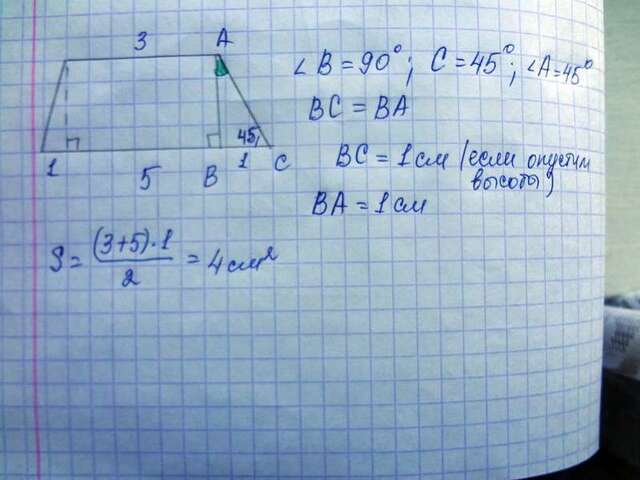 3 A
45°
1 5 B 1 C
∠B = 90°; C = 45°; ∠A = 45°
BC = BA
BC = 1 см (если опустим
высоты)
BA = 1 см
S = (3+5)·1 / 2 = 4 см²